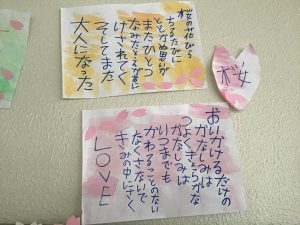 桜の花びら
ちるたびに
とどかぬ思いが
またひとつ
なみだとえがおに
けされてく
そしてまた
大人になった
桜
おいかけるだけの
かなしみは
つよくきよらかな
かなしみは
いつまでも
かわることのない
なくさないで
きみの中にさく
LOVE